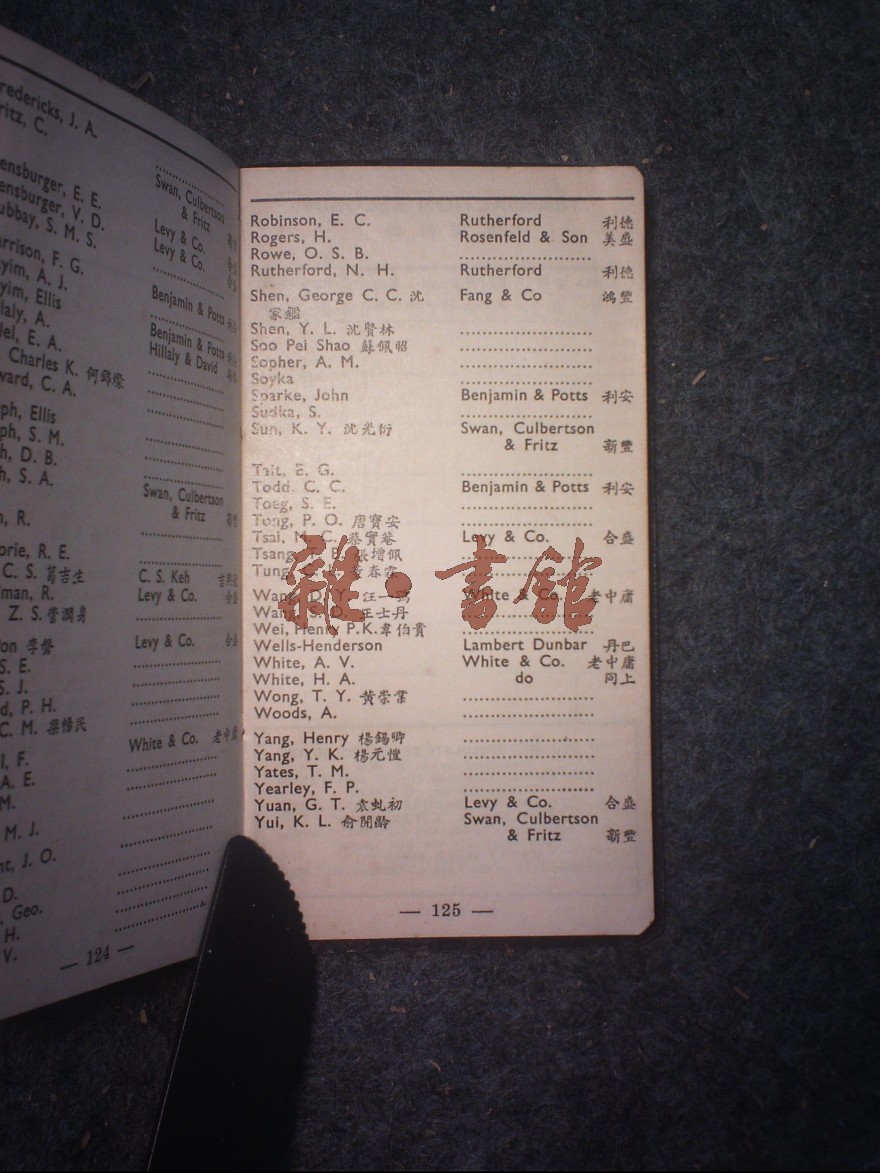 Fredericks, J. A.
ritz, C.
Swan, Culbertson
& Fritz
ensburger, E. E. Levy & Co.
ensburger, V. D. Levy & Co.
ubbay, S. M. S.
rrison, F. G. Benjamin & Potts
yim, A. J.
yim, Ellis Benjamin & Potts
laly, A. Hillaly & David
el, E. A.
Charles K. 何錦燦
ward, C. A.
ph, Ellis
ph, S. M.
h, D. B.
h, S. A.
Swan, Culbertson
& Fritz
, R.
orie, R. E.
C. S. 葛吉生 C. S. Keh
man, R. Levy & Co.
Z. S. 管潤身
Levy & Co.
S. E.
S. J.
d, P. H.
C. M. 樂幡民
White & Co. 老中庸
l, F.
A. E.
M.
M. J.
nt, J. O.
D.
, Geo.
H.
V.
— 124 —
Robinson, E. C. Rutherford 利德
Rogers, H. Rosenfeld & Son 美盛
Rowe, O. S. B. ........................
Rutherford, N. H. Rutherford 利德
Shen, George C. C. 沈 Fang & Co 鴻豐
家鑑
Shen, Y. L. 沈賢林 ........................
Soo Pei Shao 蘇佩昭 ........................
Sopher, A. M. ........................
Soyka ........................
Sparke, John Benjamin & Potts 利安
Sudka, S. ........................
Sun, K. Y. 沈光衍 Swan, Culbertson
& Fritz 新豐
Tait, E. G. ........................
Todd. C. C. Benjamin & Potts 利安
Toeg, S. E. ........................
Tong, P. O. 唐寶安 ........................
Tsai, M. C. 蔡寶菴 Levy & Co. 合盛
Tsang, 張增佩 ........................
Tung, 春霖 ........................
Wang, D. Y. 汪一 White & Co. 老中庸
Wang, S. D. 王士丹 ........................
Wei, Henry P.K. 韋伯貴 ........................
Wells-Henderson Lambert Dunbar 丹巴
White, A. V. White & Co. 老中庸
White, H. A. do 同上
Wong, T. Y. 黃崇業 ........................
Woods, A. ........................
Yang, Henry 楊錫卿 ........................
Yang, Y. K. 楊元愷 ........................
Yates, T. M. ........................
Yearley, F. P. ........................
Yuan, G. T. 袁虬初 Levy & Co. 合盛
Yui, K. L. 俞開齡 Swan, Culbertson
& Fritz 新豐
— 125 —
雜·書館